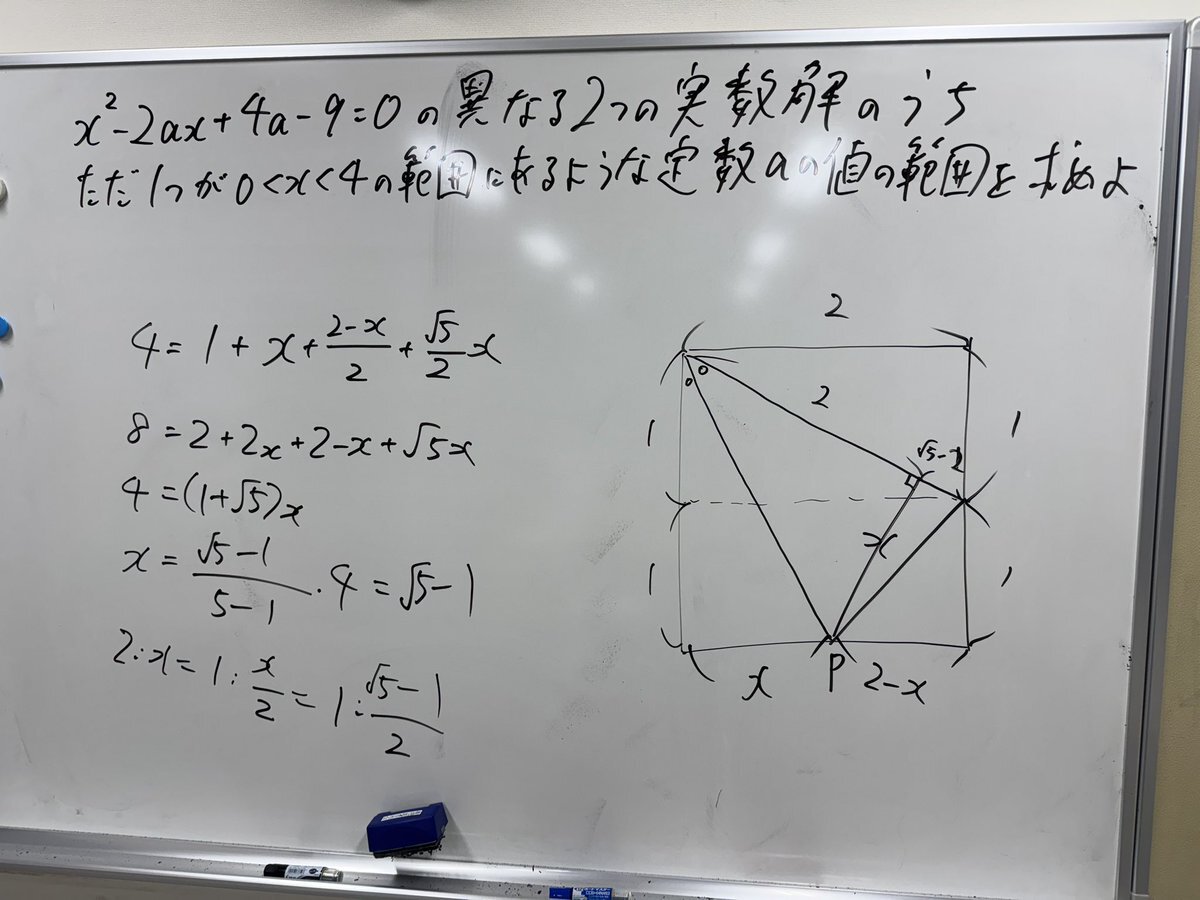 x²-2ax+4a-9=0の異なる2つの実数解のうち
ただ1つが0<x<4の範囲にあるような定数aの値の範囲を求めよ.
4=1+x+\frac{2-x}{2}+\frac{√5}{2}x
8=2+2x+2-x+√5x
4=(1+√5)x
x=\frac{√5-1}{5-1}・4=√5-1
2:x=1:\frac{x}{2}=1:\frac{√5-1}{2}
2
2
1
1
√5-2
x
1
1
x
P
2-x